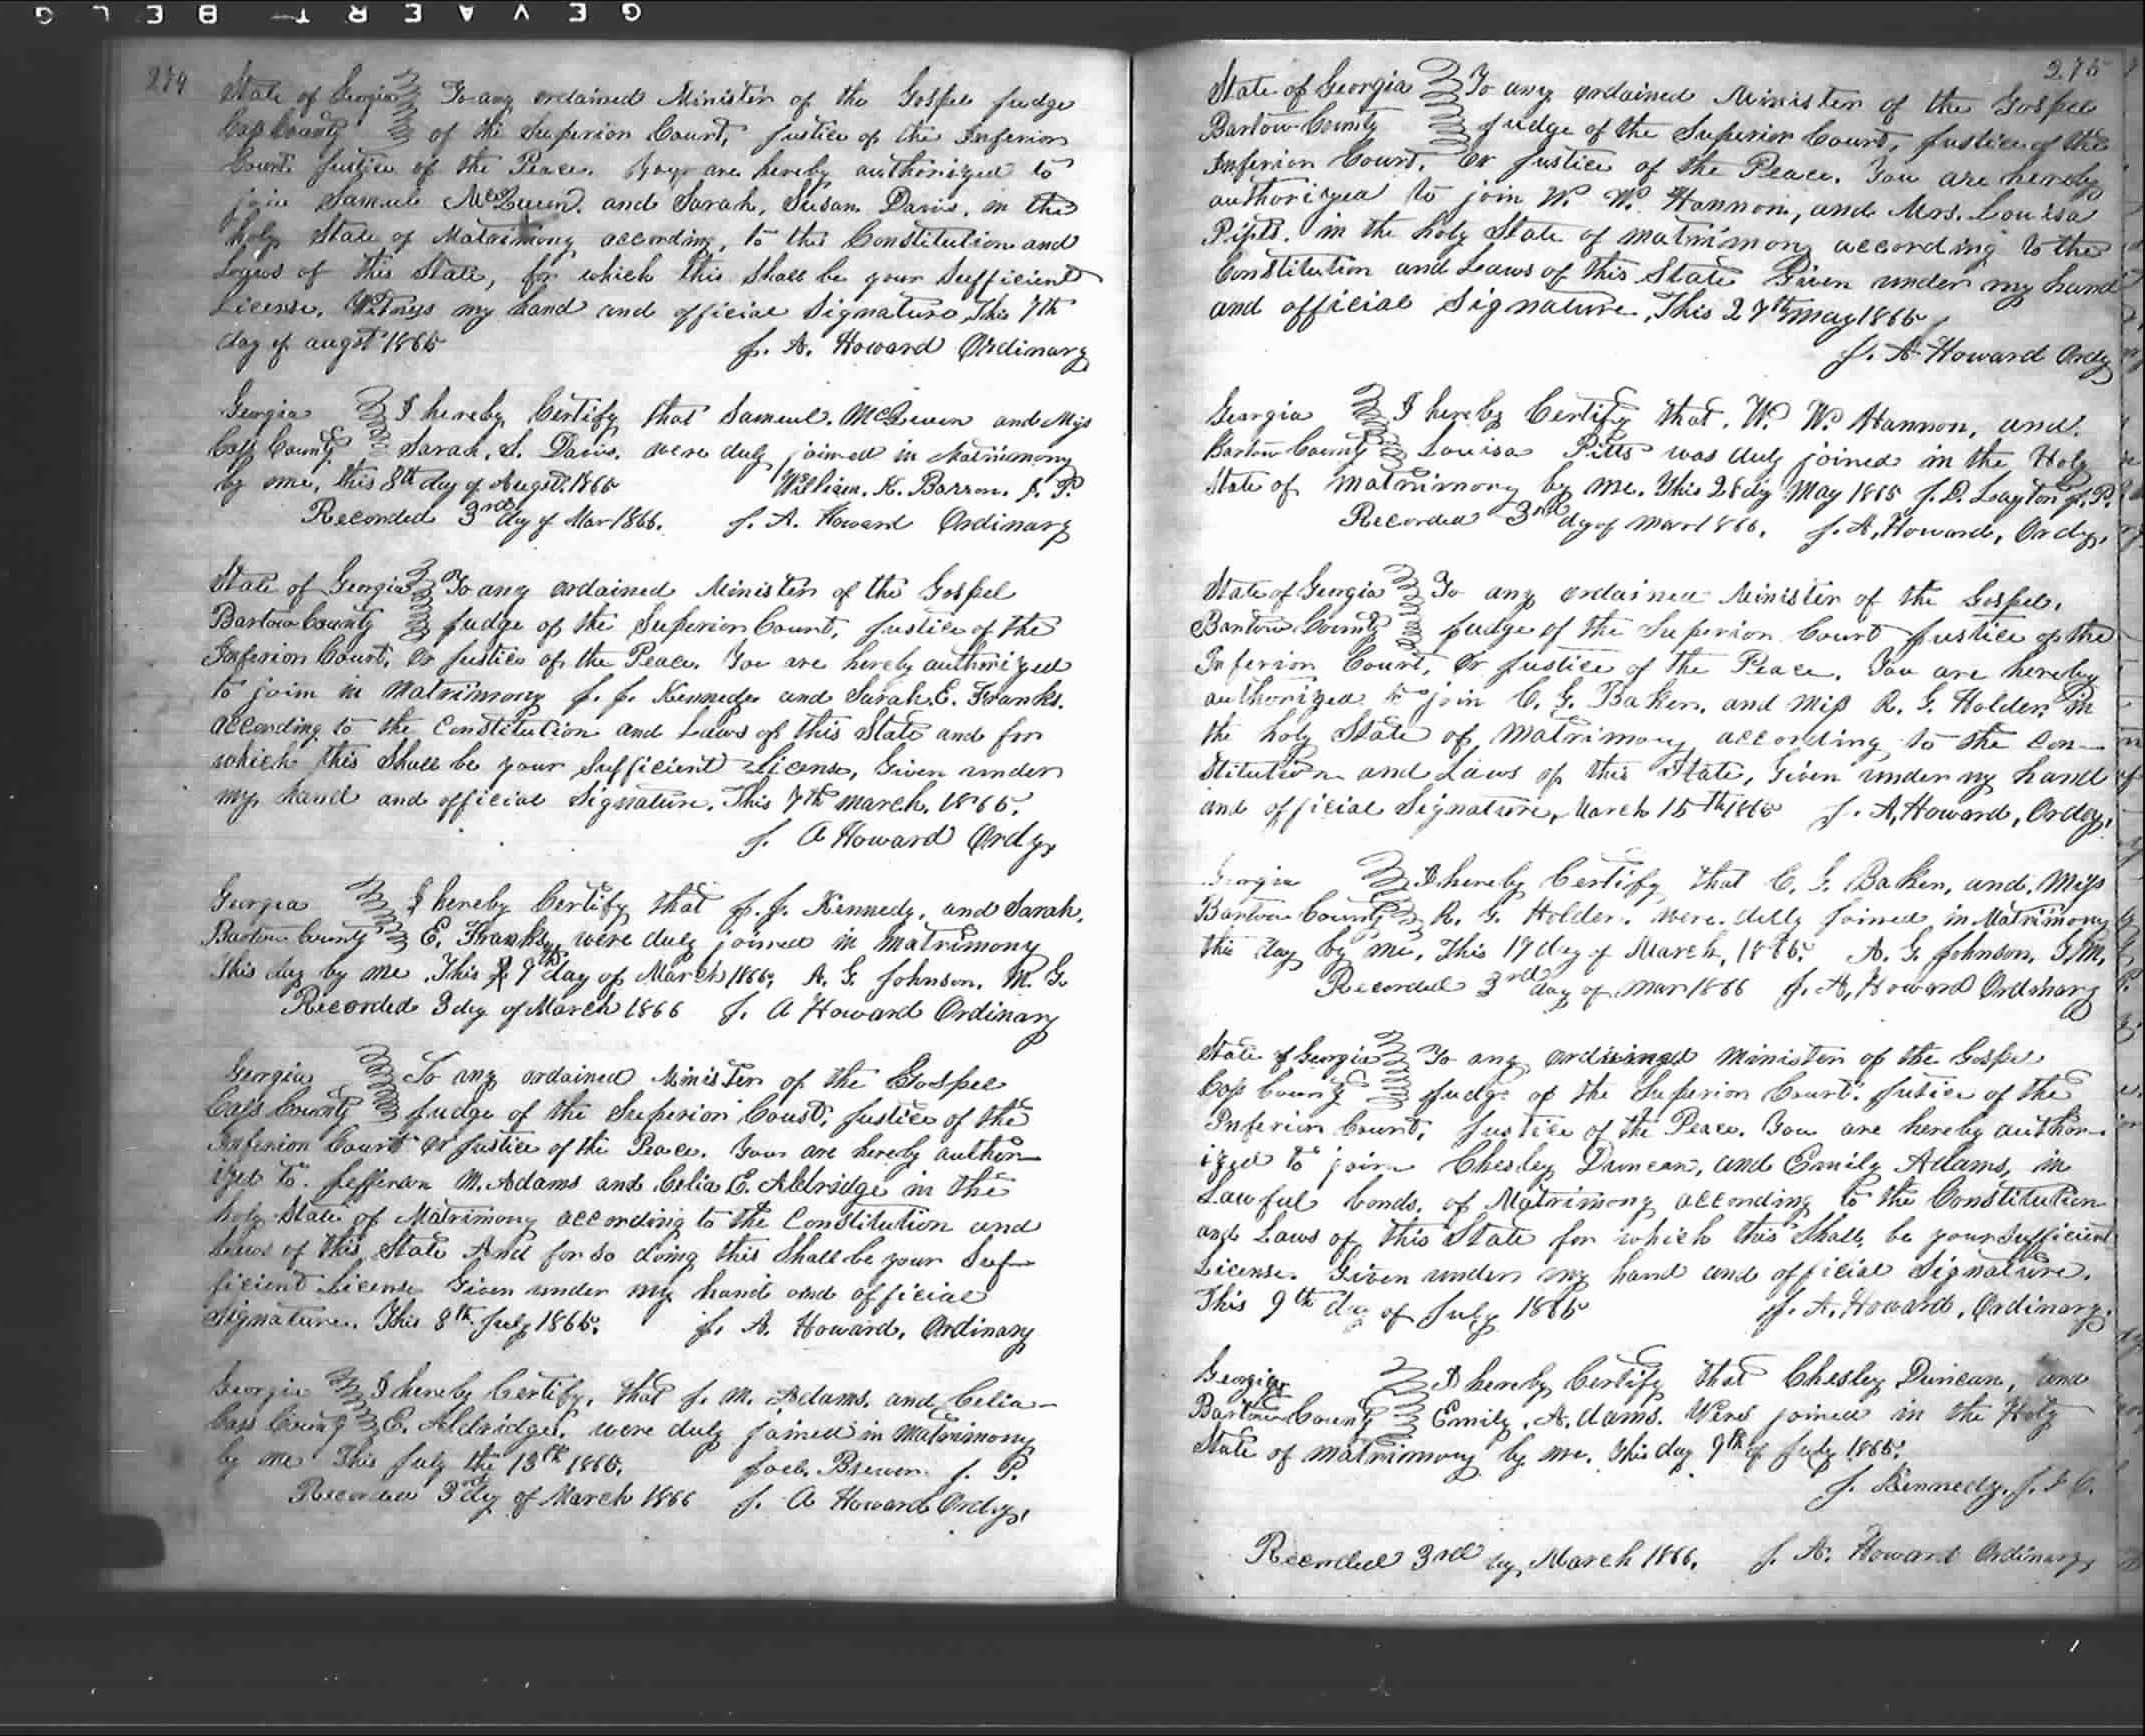 GEVAERT BELG
274
State of Georgia To any ordained Minister of the Gospel Judge
Cass County of the Superior Court, Justice of the Inferior
Court Justice of the Peace. You are hereby authorized to
join Samuel McQueen. and Sarah, Susan Davis, in the
holy State of Matrimony according, to the Constitution and
Laws of this State, for which this Shall be your Sufficient
License, Witness my hand and official Signature, This 7th
day of augst 1865 J. A. Howard Ordinary
Georgia I hereby Certify that Samuel. McQueen and Miss
Cass County Sarah, S. Davis. were duly joined in Matrimony
by me, this 8th day of August, 1865 William. K. Barron. J. P.
Recorded 3rd dy of Mar 1866. J. A. Howard Ordinary
State of Georgia To any ordained Minister of the Gospel
Bartow County Judge of the Superior Court, Justice of the
Inferior Court, Or Justice of the Peace. You are hereby authorized
to join in Matrimony J. J. Kennedy and Sarah. E. Franks.
according to the Constitution and Laws of this State and for
which this Shall be your Sufficient License, Given under
my hand and official Signature. This 7th march, 1865.
J. A Howard Ordy,
Georgia I hereby Certify that J. J. Kennedy, and Sarah.
Bartow County E. Franks, were duly joined in matrimony
This day by me. This 9th day of March 1865, A. G. Johnson. M. G.
Recorded 3 dy of March 1866 J. A Howard Ordinary
Georgia To any ordained Minister of the Gospel
Cass County Judge of the Superior Court, Justice of the
Inferior Court or Justice of the Peace. You are hereby author-
ized to. Jefferson M. Adams and Celia E. Aldridge in the
holy State of Matrimony according to the Constitution and
Laws of this State And for so doing this Shall be your Suf-
ficient License Given under my hand and official
Signature. This 8th July 1865. J. A. Howard, Ordinary
Georgia I hereby Certify, that J. M. Adams, and Celia-
Cass County E. Aldridge. were duly joined in Matrimony
by me This July the 13th 1865. Joel. Brewer. J. P.
Recorded 3rd dy of March 1866 J. A Howard Ordy,
275
State of Georgia To any ordained Minister of the Gospel
Bartow County Judge of the Superior Court, Justice of the
Inferior Court, Or Justice of the Peace. You are hereby
authorized to join W. W. Hannon, and Mrs. Louisa
Pitts. in the holy State of matrimony according to the
Constitution and Laws of this State Given under my hand
and official Signature, This 27th may 1865
J. A. Howard Ordy
Georgia I hereby Certify that. W. W. Hannon, and.
Bartow County Louisa Pitts was duly joined in the Holy
State of matrimony by me. This 28 dy May 1865 J. D. Layton J. P.
Recorded 3rd dy of mar 1866. J. A, Howard, Ordy,
State of Georgia To any ordained Minister of the Gospel.
Bartow County Judge of the Superior Court Justice of the
Inferior Court, Or Justice of the Peace. You are hereby
authorized to join C. G. Baker, and Miss R. G. Holder, in
the holy State of Matrimony according to the Con-
stitution and Laws of this State, Given under my hand
and official Signature, March 15th 1865 J. A, Howard, Ordy,
Georgia I hereby Certify that C. G. Baker, and, Miss
Bartow County R. G. Holder. were. duly joined in Matrimony
this day by me, This 19 day of March, 1865. A. G. Johnson, G, M,
Recorded 3rd day of Mar 1866 J. A, Howard Ordinary
State of Georgia To any ordained Minister of the Gospel
Cass County Judge of the Superior Court. Justice of the
Inferior Court, Justice of the Peace. You are hereby author-
ized to join Chesley Duncan, and Emily Adams, in
Lawful bonds. of Matrimony according to the Constitution
and Laws of this State for which this Shall, be your sufficient
License. Given under my hand and official Signature.
This 9th dy of July 1865 J. A. Howard, Ordinary,
Georgia I hereby Certify that Chesley Duncan, and
Bartow County Emily, Adams. Were joined in the Holy
State of matrimony by me. this day 9th of July 1865.
J. Kennedy, J. I C.
Recorded 3rd dy, March 1866, J. A. Howard Ordinary,